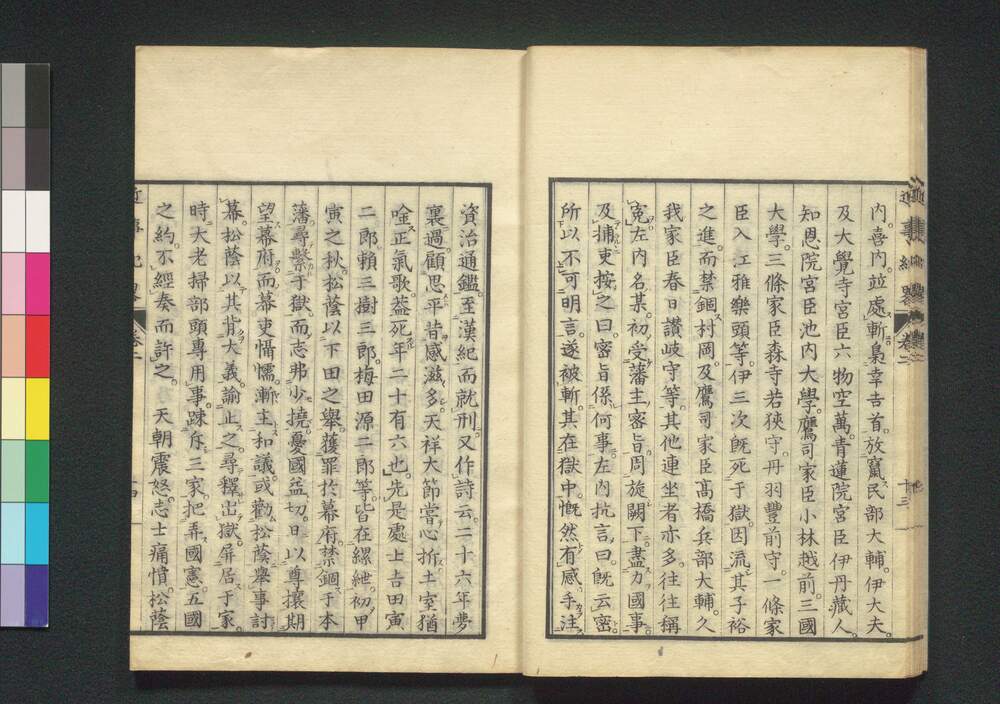 内喜内。並處斬。梟幸吉首。放竄民部大輔。伊大夫。
及大覺寺宮臣六物空萬。青蓮院宮臣伊丹藏人。
知恩院宮臣池内大學。鷹司家臣小林越前。三國
大學。三條家臣森寺若狹守。丹羽豐前守。一條家
臣入江雅樂頭等。伊三次既死于獄。因流其子裕
之進。而禁錮村岡。及鷹司家臣高橋兵部大輔。久
我家臣春日讚岐守等。其他連坐者亦多。往往稱
冤。左内名某。初受藩主密旨。周旋闕下。盡力國事。
及捕吏按之曰。密旨係何事。左内抗言曰。既云密。
所以不可明言。遂被斬。其在獄中。慨然有感。手注
資治通鑑。至漢紀而就刑。又作詩云。二十六年夢
裏過。顧思平昔感滋多。天祥大節嘗心折。土室猶
唫正氣歌。葢死年二十有六也。先是處士吉田寅
二郎。賴三樹三郎。梅田源二郎等。皆在縲紲。初甲
寅之秋。松蔭以下田之舉。獲罪於幕府。禁錮于本
藩。尋繫于獄。而志弗少撓。憂國益切。日以尊攘期
望幕府。而幕吏懾懦。漸主和議。或勸松蔭舉事討
幕。松蔭以其背大義。諭止之。尋釋出獄。屏居于家。
時大老掃部頭專用事。踈斥三家。把弄國憲。五國
之約。不經奏而許之。　天朝震怒。志士痛憤。松蔭